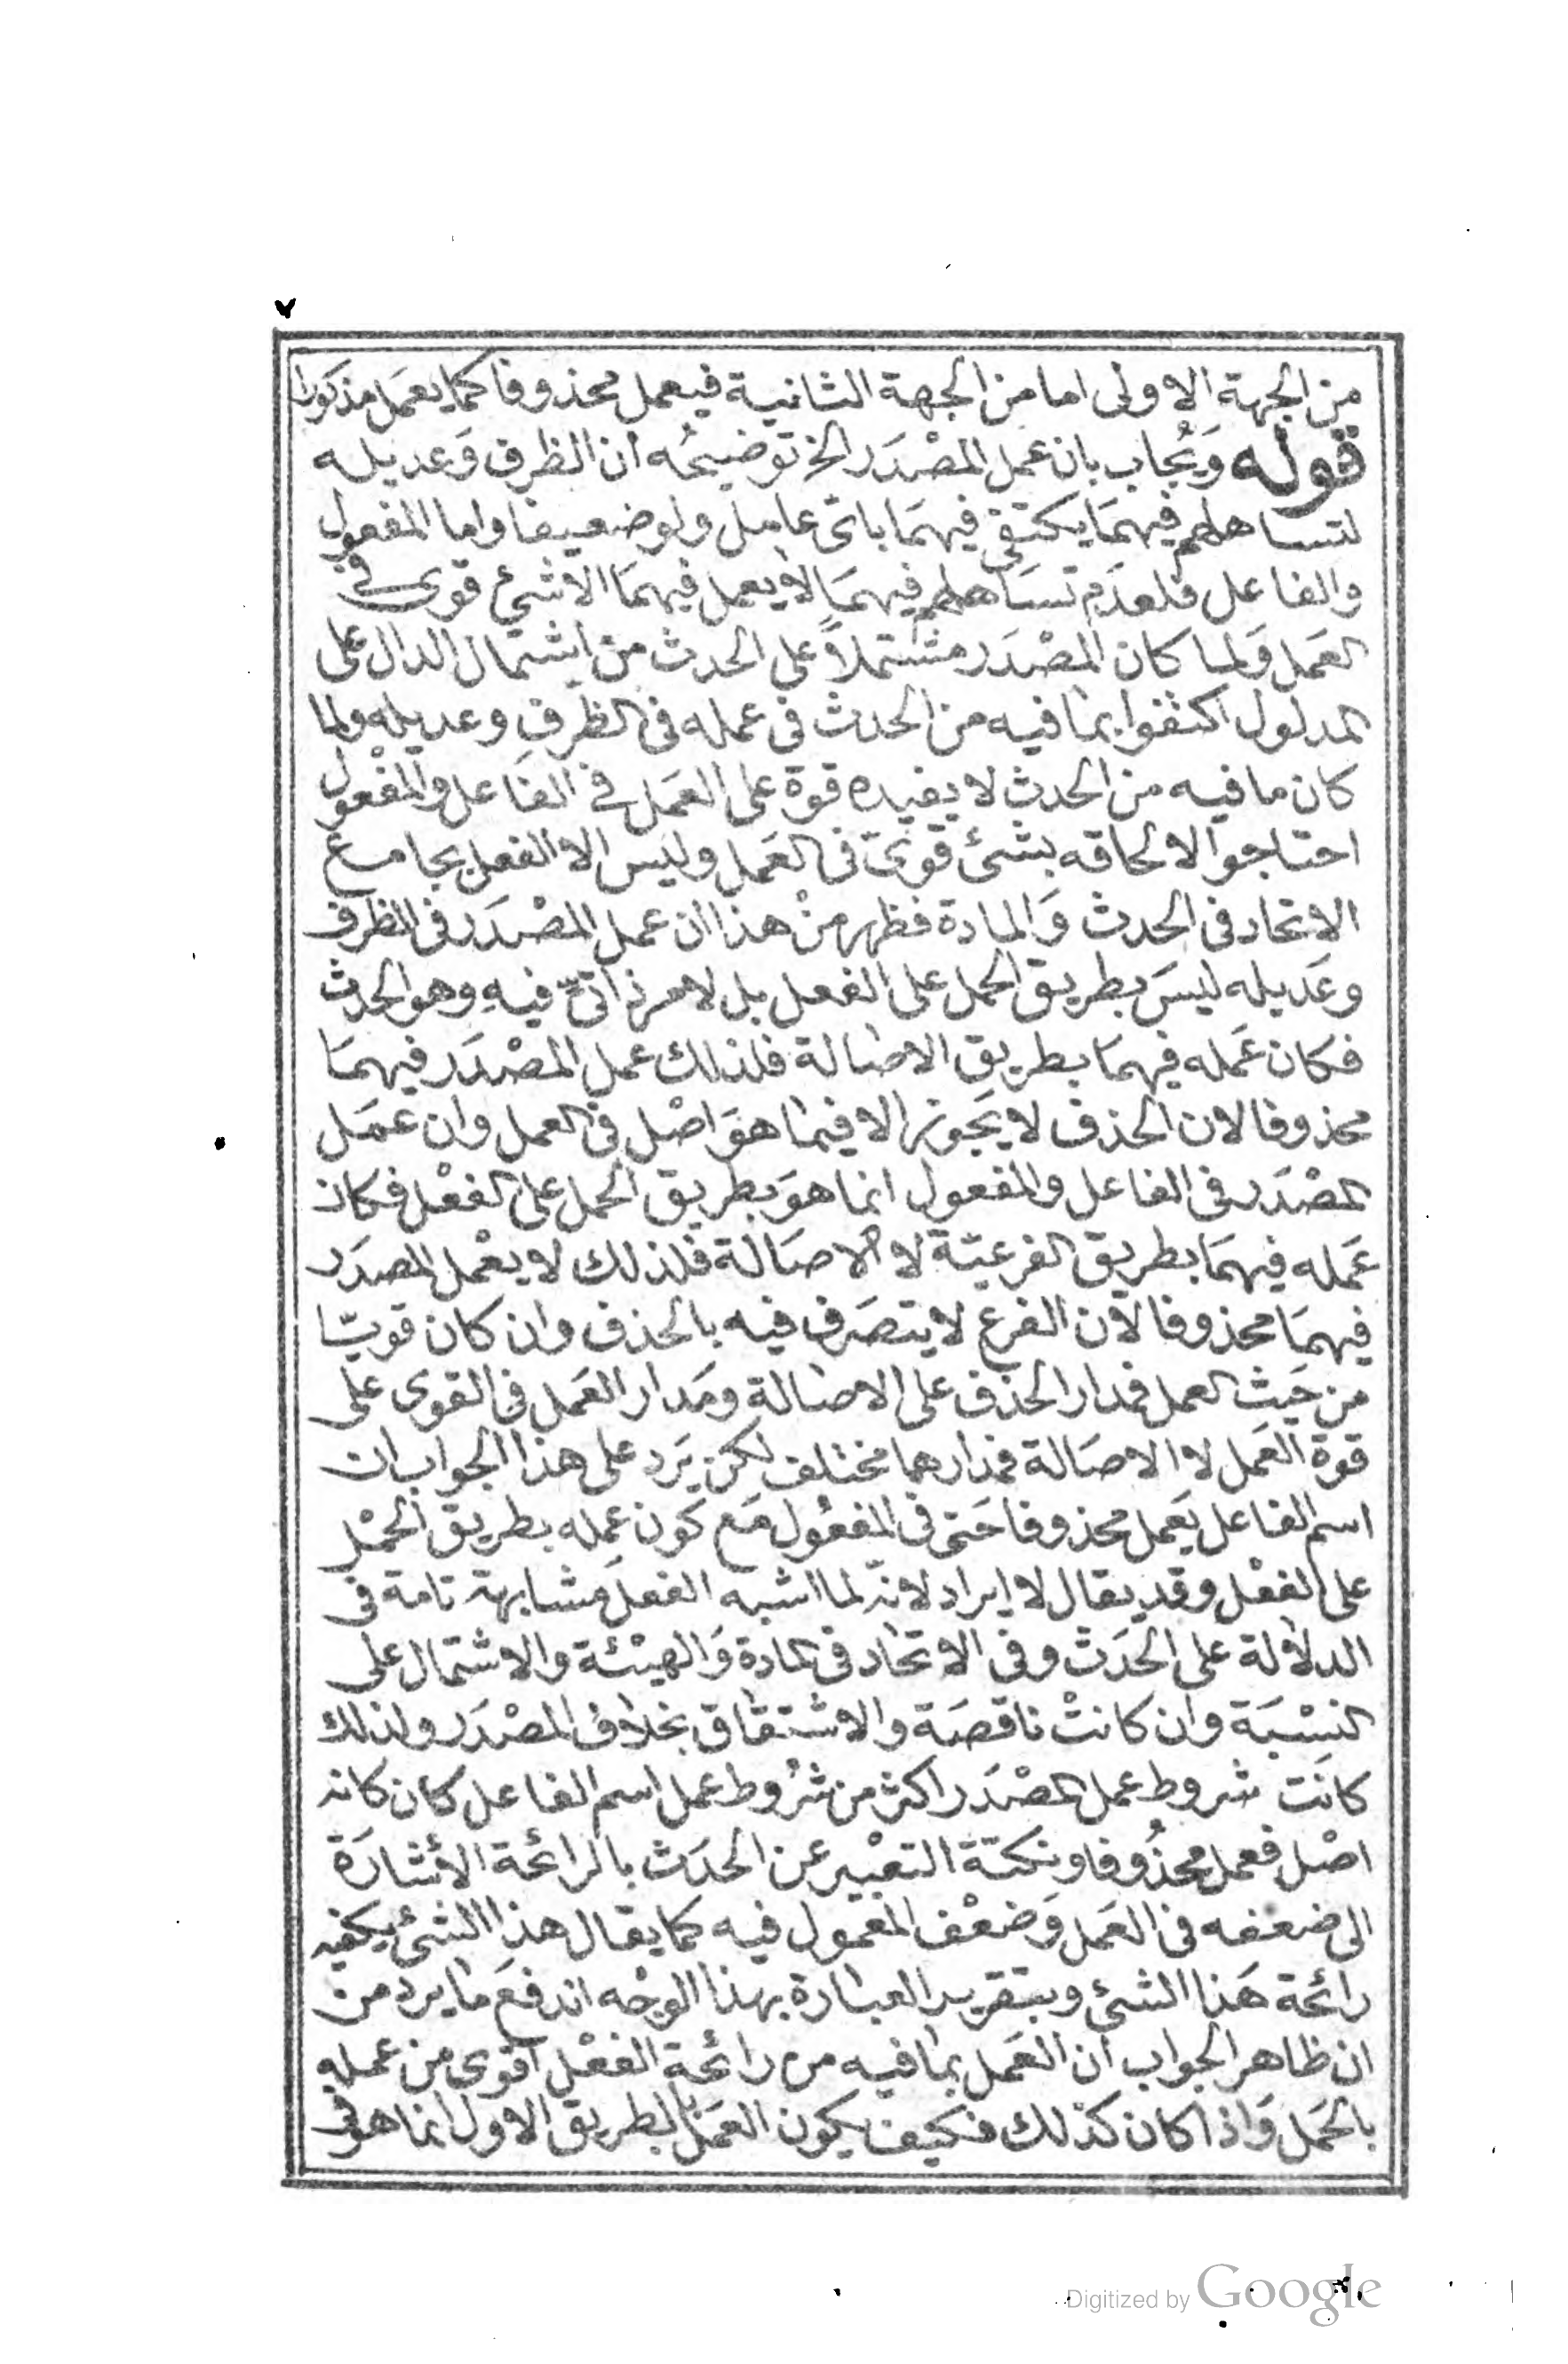 ٧
من الجهة الاولى اما من الجهة الثانية فيعمل محذوفا كما يعمل مذكورا
قوله وَيُجاب بان عمل المصْدَر الخ توضيحُه ان الظرف وَعديله
لتساهلهم فيهمَا يكتفى فيهمَا باىّ عامل ولو ضعيفا واما المفعول
والفاعل فلعدَم تسَاهلهم فيهمَا لا يعمل فيهمَا الا شئ قوى فى
العَمل وَلما كان المصْدَر مشتملاً على الحدث من اشتمال الدال على
المدلول اكتفوا بما فيه من الحدث فى عمله فى الظرفِ وعديله ولما
كان ما فيه من الحدث لا يفيده قوة على العَمل فى الفاعل والمفْعول
احتاجوا لالحاقه بشئ قوىّ فى العَمل وليس الا الفعل بجامع
الاتحاد فى الحدث وَالمادة فظهر منْ هذا ان عمل المصْدَر فى الظرف
وعَديله ليسَ بطريق الحمل على الفعل بل لامر ذاتىّ فيهِ وهو الحدث
فكان عَمله فيهمَا بطريق الاصالة فلذلك عمل المصْدَر فيهمَا
محذوفا لان الحذف لا يَجوز الا فيما هوَ اصْل فى العمل وان عمَل
المصْدَر فى الفاعل والمفعول انما هوَ بطريق الحمل على الفعْل فكان
عَمله فيهمَا بطريق الفرعيّة لا الاصَالة فلذلك لا يعْمل المصدَر
فيهمَا محذوفا لان الفرع لا يتصَرف فيه بالحذف وان كان قويّا
من حَيث العمل فمدار الحذف على الاصالة ومَدار العَمل فى القوى على
قوة العَمل لا الاصَالة فمدارهما مختلف لكن يَرد على هذا الجواب ان
اسم الفاعل يَعمل محذوفا حَتى فى المفعُول مَع كون عمله بطريق الحمْل
على الفعْل وقد يقال لا إيراد لانه لما اشبه الفعل مشابهة تامة فى
الدلالة على الحَدَث وفى الاتحاد فى المادة وَالهيْئة والاشتمال على
النسْبَة وان كانتْ ناقصَة والاشتقاق بخلاف المصْدَر ولذلك
كانَت شروط عمل المصْدَر اكثر من شرُوط عمل اسم الفاعل كان كانه
اصْل فعمل محذُوفا ونكتة التعبْير عن الحدَث بالرائحة الأشارَة
الى ضعفه فى العَمل وَضعْف المعْمول فيه كما يقال هذا الشئ يكفيه
رائحة هَذا الشئ وبتقرير العبارة بهذا الوجْه اندفعَ ما يرد من
ان ظاهر الجواب ان العَمل بما فيه من رائحة الفعْل اقوى من عمله
بالحَمل وَاذا كان كذلك فكيف يكون العَمل بالطريق الاول انما هو فى
Digitized by Google